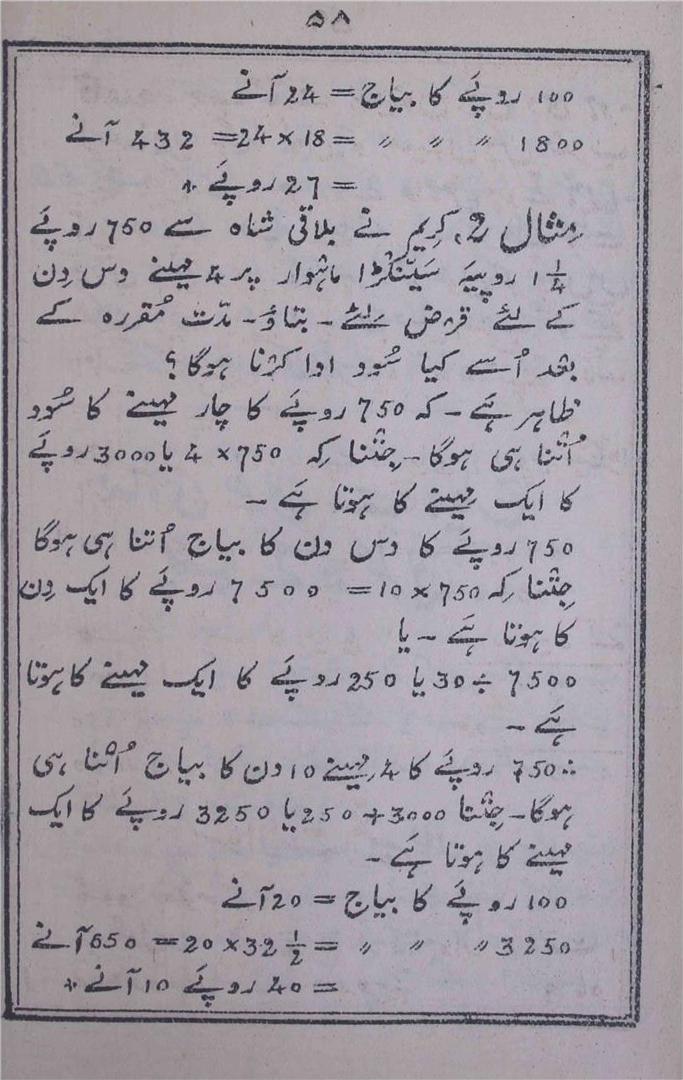 ۵۸
100 روپے کا بیاج = 24 آنے
1800 〃 〃 〃 = 18 × 24 = 432 آنے
= 27 روپے +
مِثال 2. کرِیم نے بلاقی شاہ سے 750 روپے
1 1/4 روپیہ سَینکڑا ماہوار پر 4 مہینے دس دِن
کے لئے قرض لئے ۔ بتاؤ ۔ مدّت مُقررہ کے
بعد اُسے کیا سُود ادا کرنا ہوگا ؟
ظاہر ہے ۔ کہ 750 روپے کا چار مہینے کا سُود
اُتنا ہی ہوگا ۔ جِتنا کہ 750 × 4 یا 3000 روپے
کا ایک مہینے کا ہوتا ہے ۔
750 روپے کا دس دن کا بیاج اُتنا ہی ہوگا
جِتنا کہ 750 × 10 = 7500 روپے کا ایک دِن
کا ہوتا ہے ۔ یا
7500 ÷ 30 یا 250 روپے کا ایک مہینے کا ہوتا
ہے ۔
∴ 750 روپے کا 4 مہینے 10 دن کا بیاج اُتنا ہی
ہوگا ۔ جِتنا 3000 + 250 یا 3250 روپے کا ایک
مہینے کا ہوتا ہے ۔
100 روپے کا بیاج = 20 آنے
3250 〃 〃 〃 = 32 1/2 × 20 = 650 آنے
= 40 روپے 10 آنے +